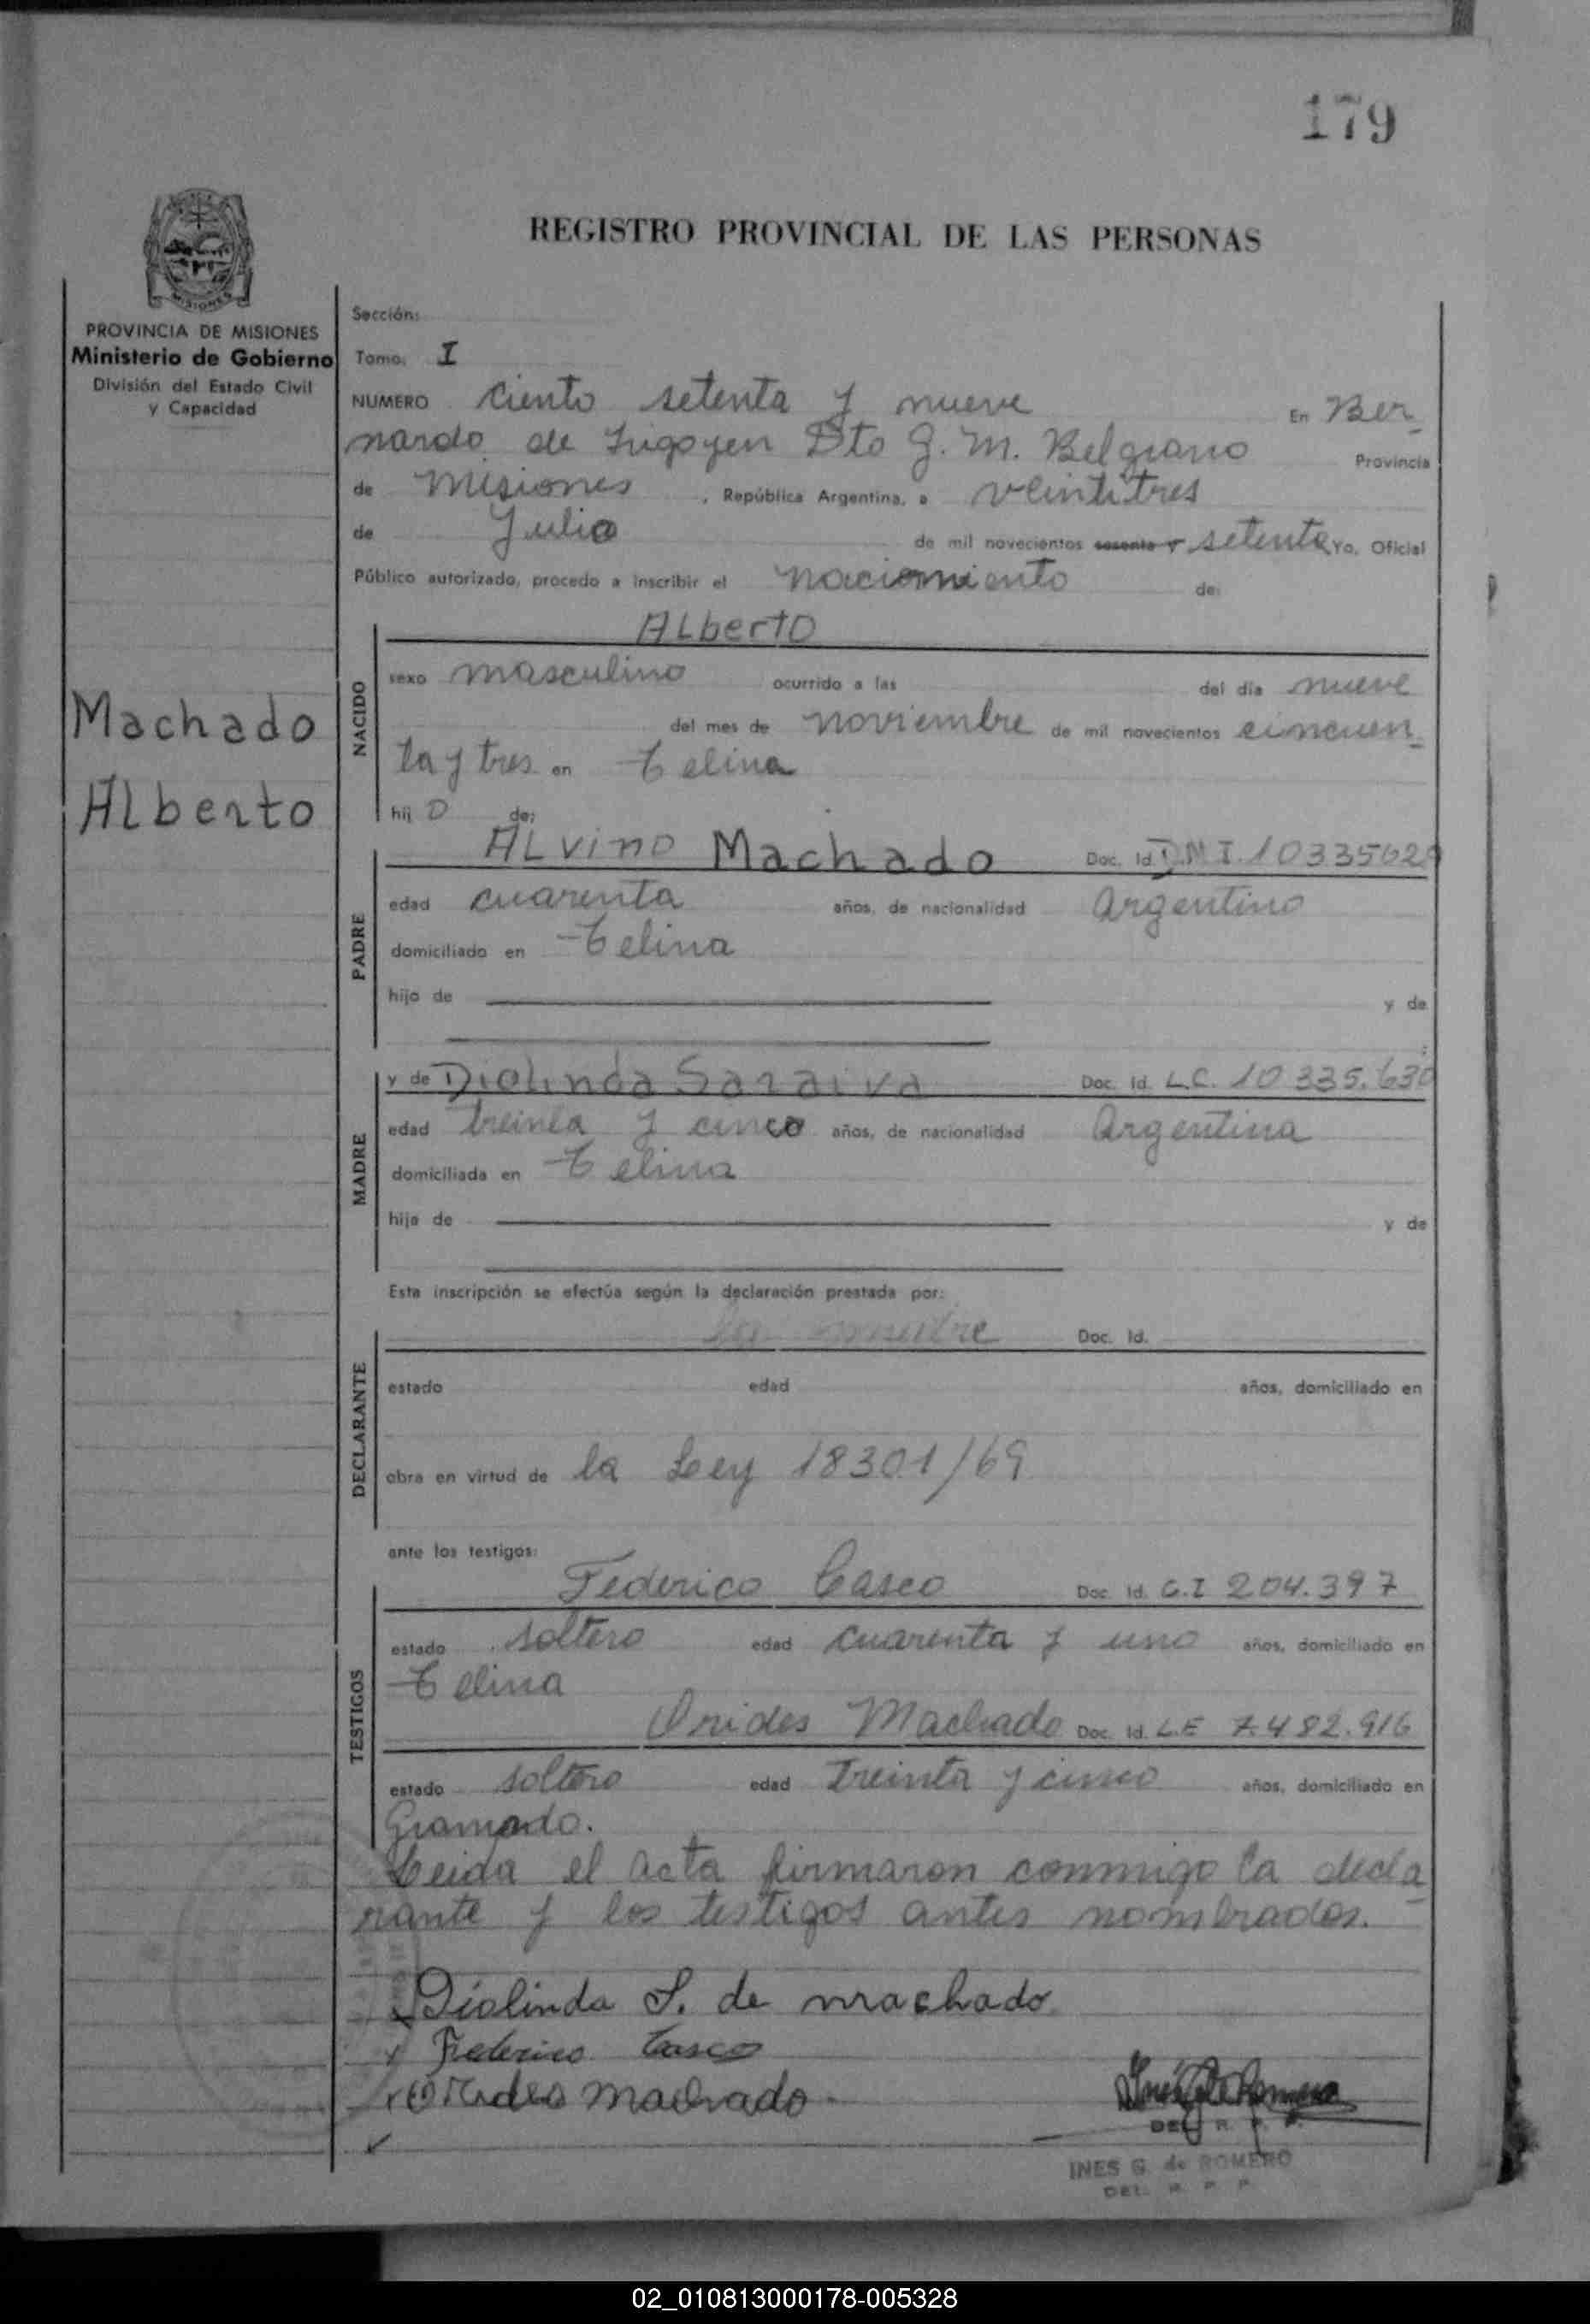 179
REGISTRO PROVINCIAL DE LAS PERSONAS
MISIONES
PROVINCIA DE MISIONES
Ministerio de Gobierno
División del Estado Civil
y Capacidad
Machado
Alberto
Sección:
Tomo: I
NUMERO Ciento setenta y nueve En Ber-
nardo de Irigoyen Dto G. M. Belgrano Provincia
de Misiones, República Argentina, a veintitres
de Julio de mil novecientos sesenta y setenta Yo, Oficial
Público autorizado, procedo a inscribir el nacimiento de:
NACIDO
Alberto
sexo masculino ocurrido a las del día nueve
del mes de noviembre de mil novecientos cincuen-
ta y tres en Celina
hij o de:
PADRE
Alvino Machado Doc. Id. D.N.I. 10335629
edad cuarenta años, de nacionalidad Argentino
domiciliado en Celina
hijo de y de
MADRE
y de Diolinda Saraiva Doc. Id. L.C. 10.335.630
edad treinta y cinco años, de nacionalidad Argentina
domiciliada en Celina
hija de y de
Esta inscripción se efectúa según la declaración prestada por:
DECLARANTE
la madre Doc. Id.
estado edad años, domiciliado en
obra en virtud de la Ley 18301/69
ante los testigos:
TESTIGOS
Federico Casco Doc. Id. C.I 204.397
estado soltero edad cuarenta y uno años, domiciliado en
Celina
Orides Machado Doc. Id. L.E 7.482.916
estado soltero edad treinta y cinco años, domiciliado en
Gramado.
Leida el acta firmaron conmigo la decla-
rante y los testigos antes nombrados.
Diolinda S. de machado
Federico Casco
Orides machado
DEL R. P. P.
INES G. de ROMERO
DEL. R. P. P.
02_010813000178-005328